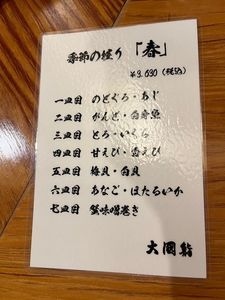 季節の握り「春」
￥3,630(税込)
一皿目 のどぐろ・あじ
二皿目 がんど・白身魚
三皿目 とろ・いくら
四皿目 甘えび・白えび
五皿目 梅貝・白貝
六皿目 あなご・ほたるいか
七皿目 蟹味噌巻き
大國鮨